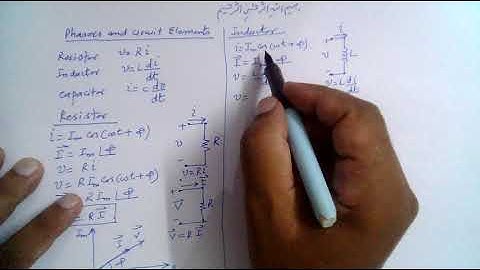 بسم الله الرحمن الرحيم
Phasors and Circuit Elements
Resistor v = Ri
Inductor v = L di/dt
Capacitor i = c dv/dt
Resistor
i = Im cos(ωt + φ)
I⃗ = Im ∠φ
v = Ri
v = R Im cos(ωt + φ)
R Im ∠φ
= R I⃗
Im
I⃗
V⃗
φ
i
+
v
R
-
v = Ri
I⃗
+
V⃗
R
-
V⃗ = R I⃗
Inductor
i = Im cos(ωt + φ)
I⃗ = φ
v = L
v =
i
+
v
L
-
v = L di/dt